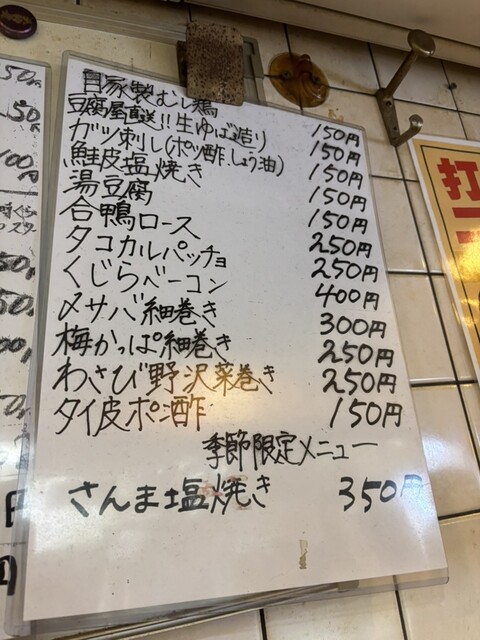 自家製むし鶏 150円
豆腐屋直送!!生ゆば(造り) 150円
ガツ刺し(ポン酢、しょう油) 150円
鮭皮塩焼き 150円
湯豆腐 150円
合鴨ロース 250円
タコカルパッチョ 250円
くじらベーコン 400円
〆サバ細巻き 300円
梅かっぱ細巻き 250円
わさび野沢菜巻き 250円
タイ皮ポン酢 150円
季節限定メニュー
さんま塩焼き 350円
打